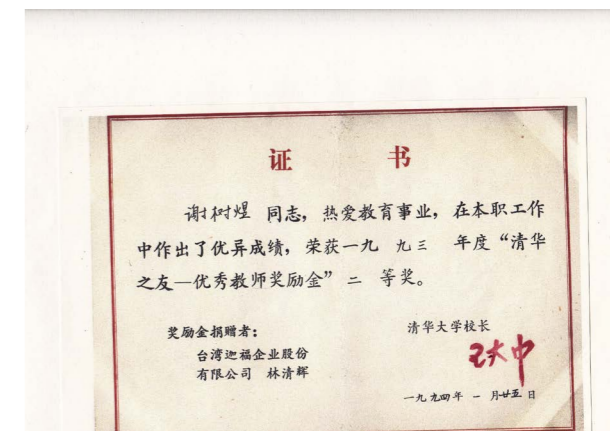 证 书
谢树煜 同志，热爱教育事业，在本职工作
中作出了优异成绩，荣获一九 九三 年度“清华
之友—优秀教师奖励金”二 等奖。
奖励金捐赠者：
台湾迦福企业股份
有限公司 林清辉
清华大学校长
王大中
一九九四年 一 月廿五日